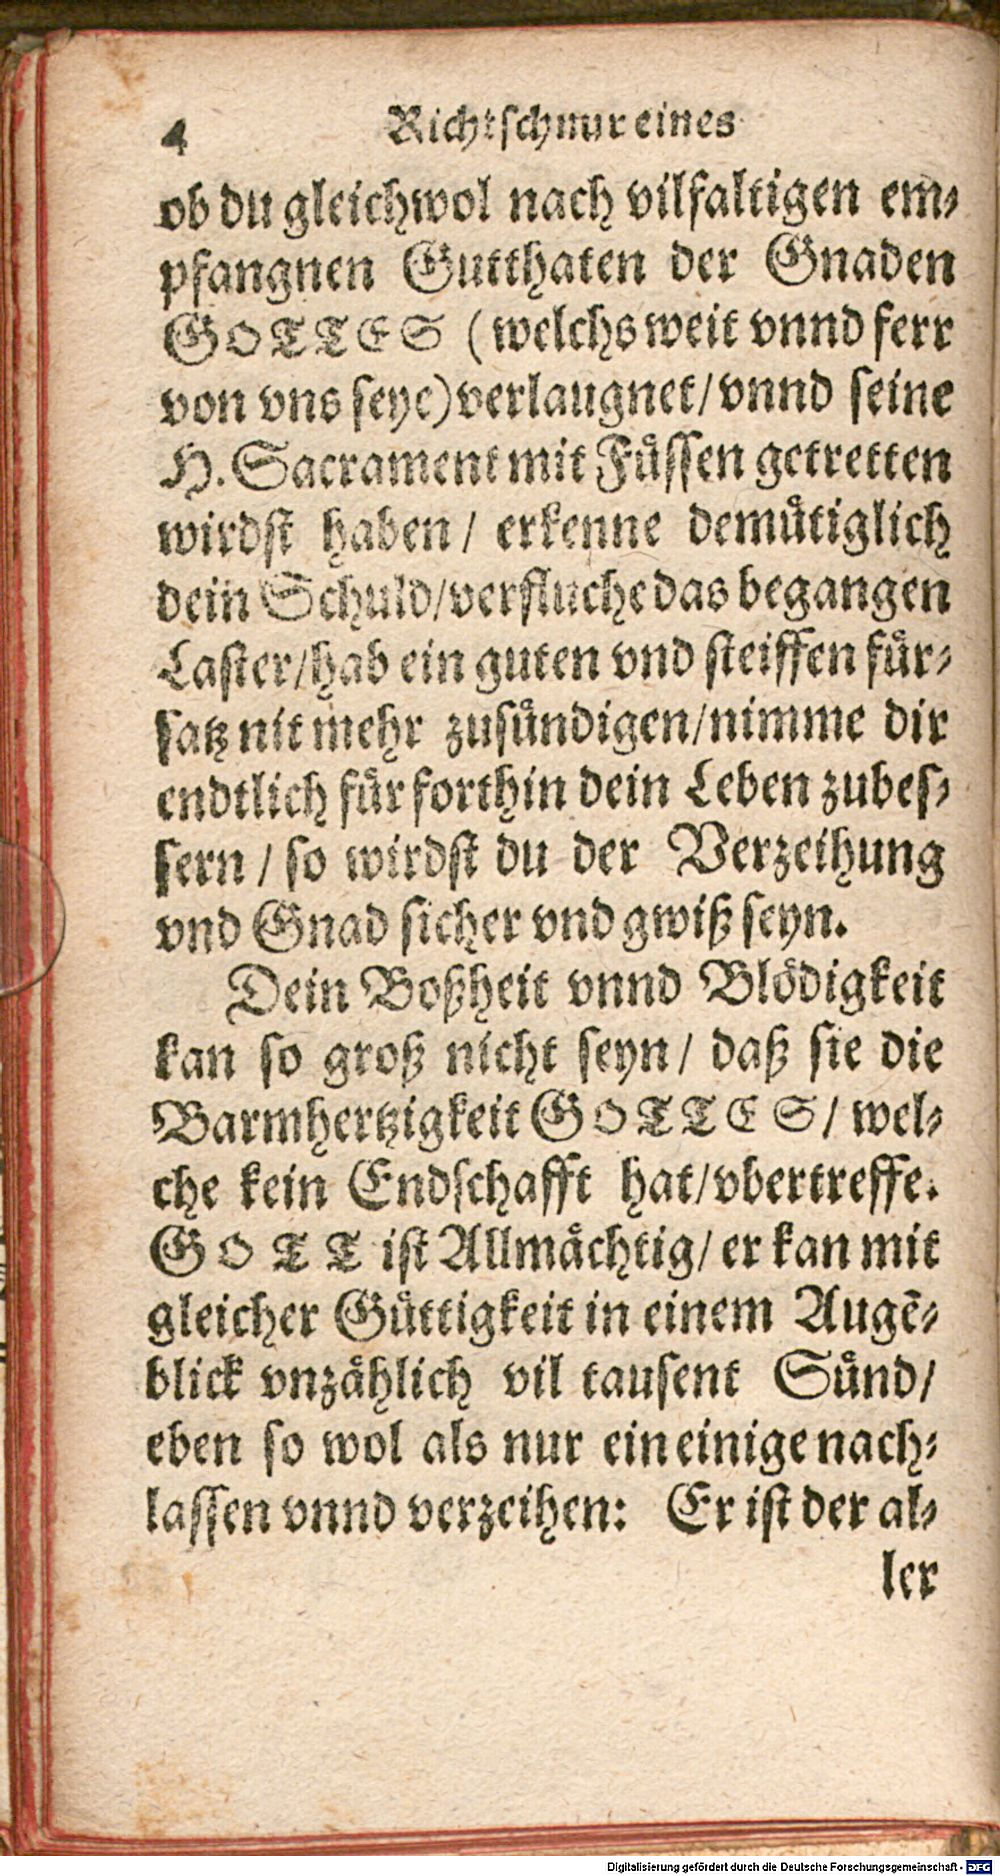 4 Richtschnur eines
ob du gleichwol nach vilfaltigen em-
pfangnen Gutthaten der Gnaden
GOTTES (welchs weit vnnd ferr
von vns seye) verlaugnet/ vnnd seine
H. Sacrament mit Füssen getretten
wirdst haben/ erkenne demütiglich
dein Schuld/ verfluche das begangen
Laster/ hab ein guten vnd steiffen für-
satz nit mehr zusündigen/ nimme dir
endtlich für forthin dein Leben zubes-
sern/ so wirdst du der Verzeihung
vnd Gnad sicher vnd gwiß seyn.
Dein Boßheit vnnd Blödigkeit
kan so groß nicht seyn/ daß sie die
Barmhertzigkeit GOTTES/ wel-
che kein Endschafft hat/ vbertreffe.
GOTT ist Allmächtig/ er kan mit
gleicher Güttigkeit in einem Augē-
blick vnzählich vil tausent Sünd/
eben so wol als nur ein einige nach-
lassen vnnd verzeihen: Er ist der al-
ler
Digitalisierung gefördert durch die Deutsche Forschungsgemeinschaft - DFG